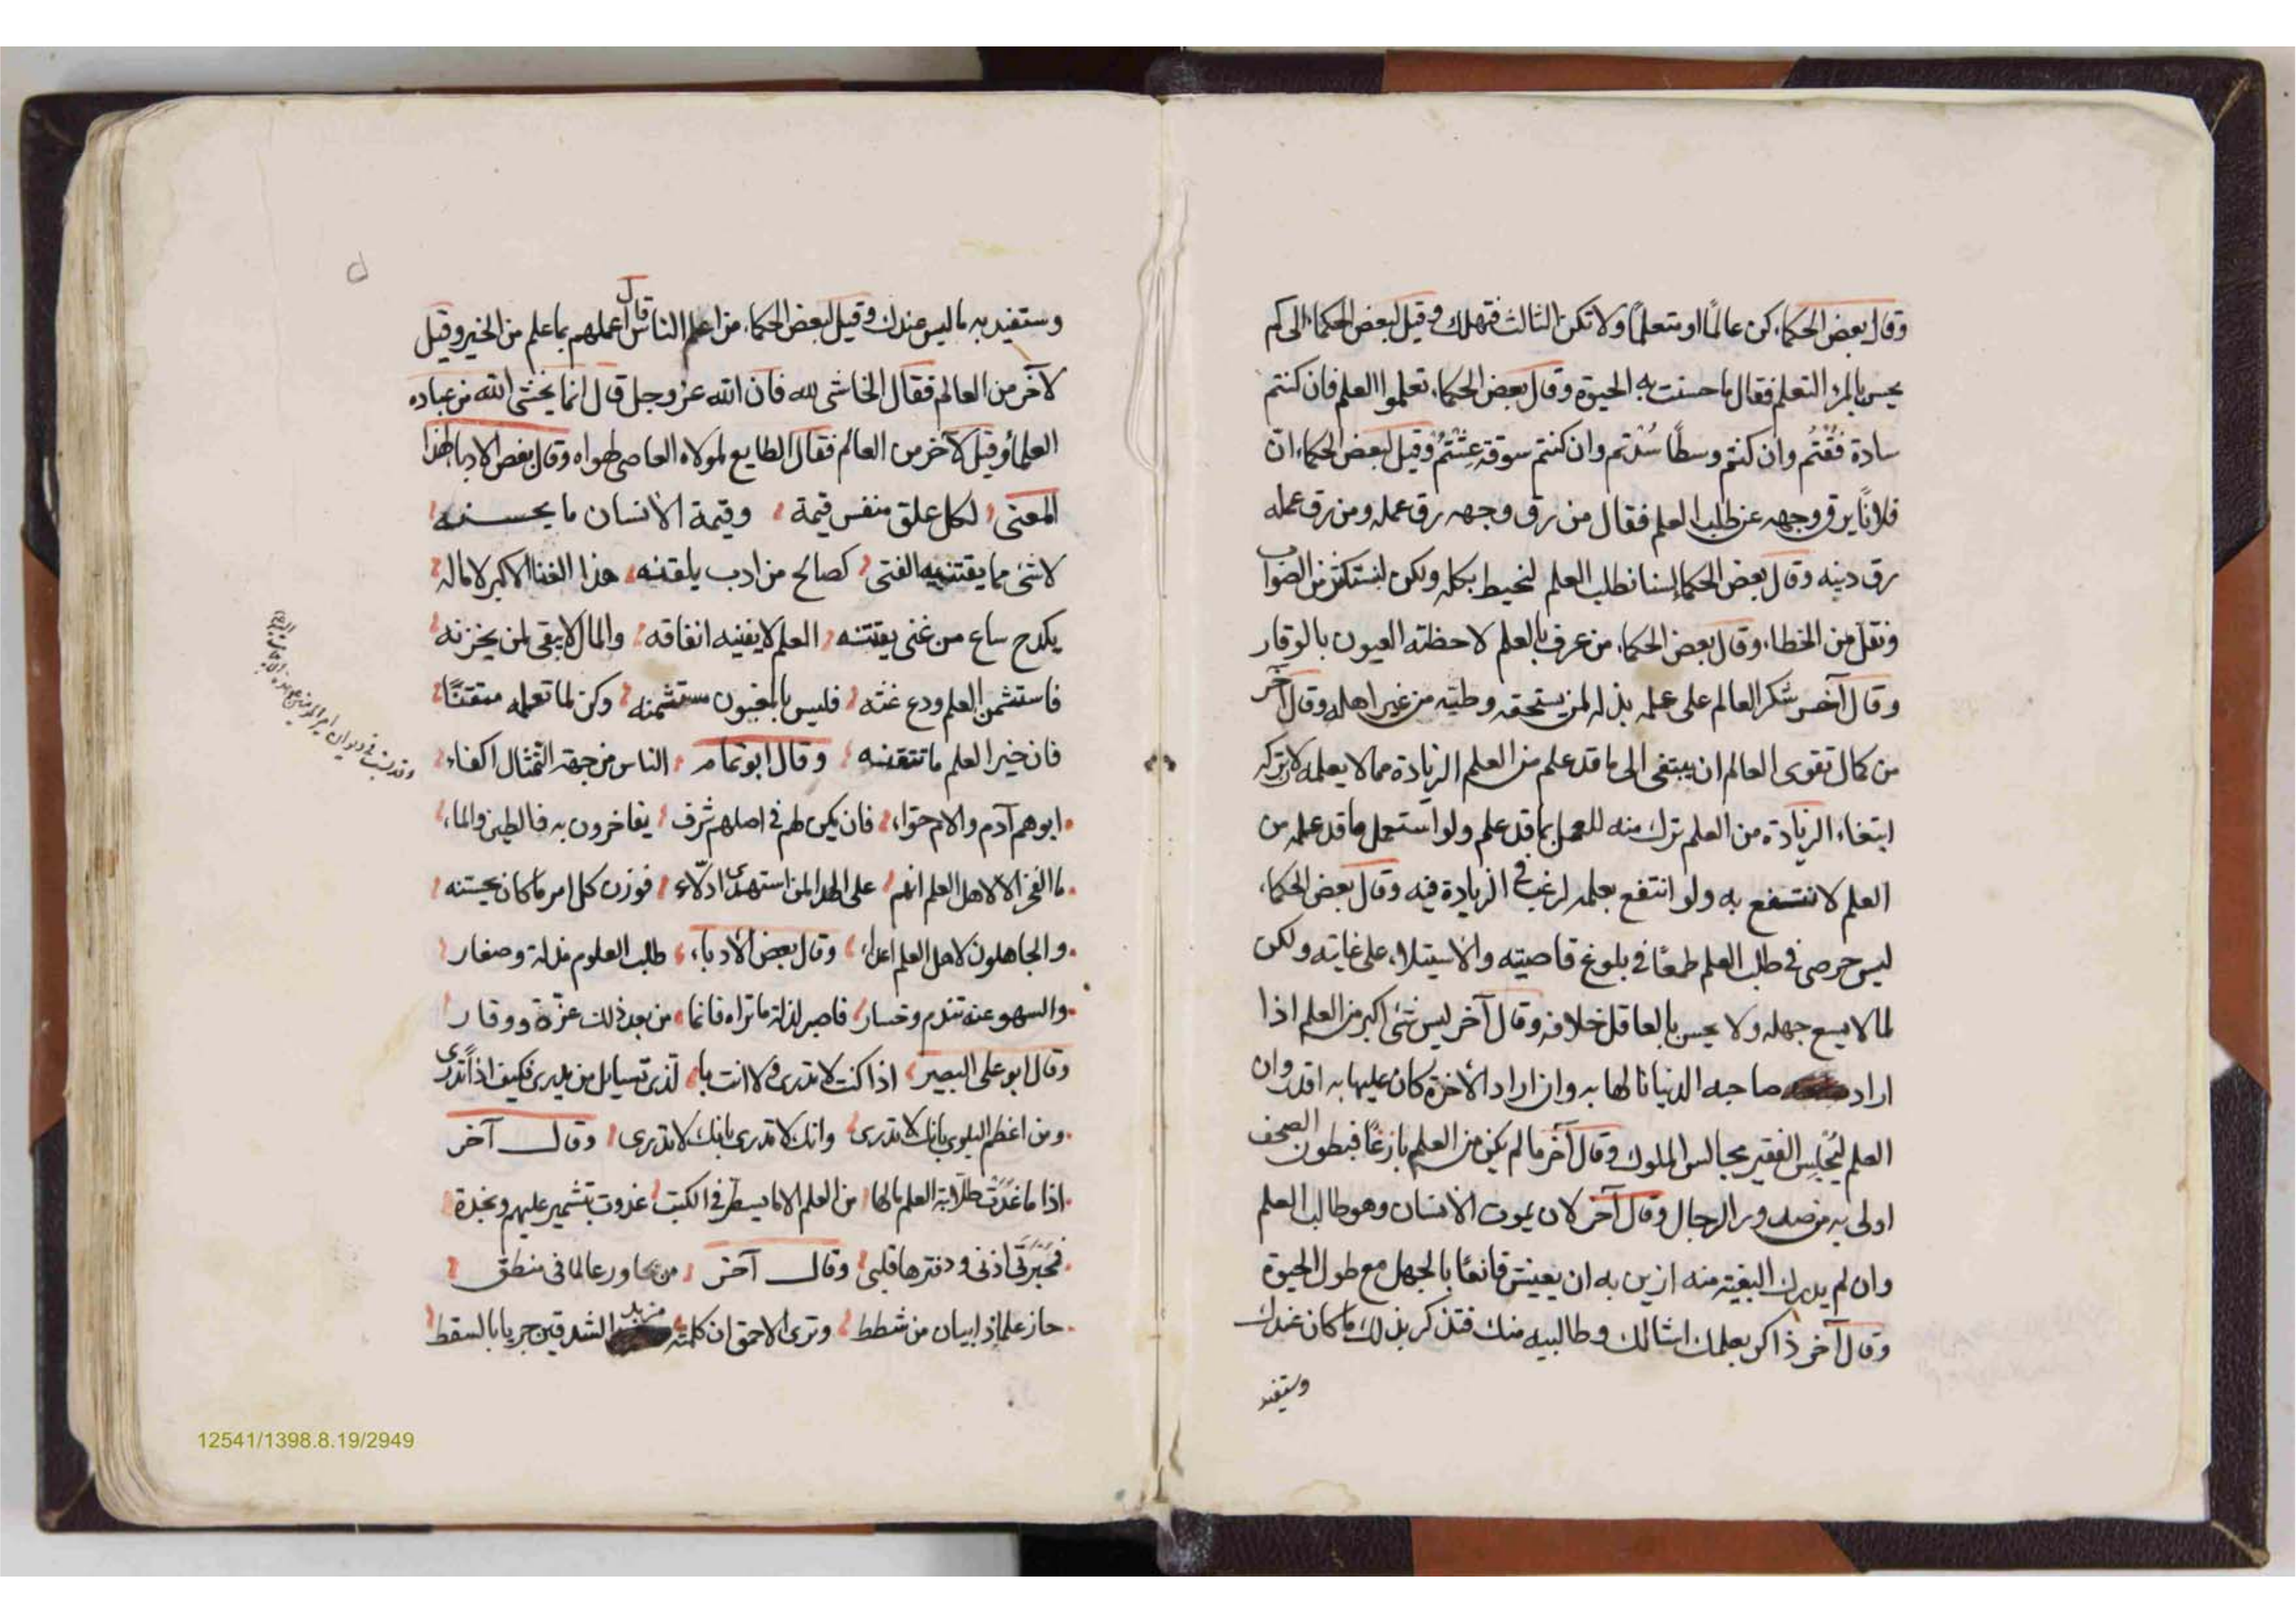 وقال بعض الحكماء كن عالمًا او متعلمًا ولا تكن الثالث فتهلك وقيل لبعض الحكماء الى كم
يحسن بالمرء التعلم فقال ما حسنت به الحيوة وقال بعض الحكماء تعلموا العلم فان كنتم
سادة فُقْتُم وان كنتم وسطًا سُدْتم وان كنتم سوقة عِشْتُمْ وقيل لبعض الحكماء ان
فلانًا يرق وجهه عن طلب العلم فقال من رق وجهه رق عمله ومن رق عمله
رق دينه وقال بعض الحكماء لسنا نطلب العلم لنحيط بكله ولكن لنستكثر من الصواب
ونقل من الخطاء وقال بعض الحكماء من عرف بالعلم لاحظته العيون بالوقار
وقال آخر شكر العالم على علمه بذله لمن يستحقه وطيه من غير اهله وقال آخر
من كمال تقوى العالم ان يبتغى الى ما قد علم من العلم الزيادة مما لا يعلمه لان تركه
ابتغاء الزيادة من العلم ترك منه للعمل بما قد علم ولو استعمل ما قد علمه من
العلم لانتفع به ولو انتفع بعلمه لرغب فى الزيادة فيه وقال بعض الحكماء
ليس حرصى فى طلب العلم طمعًا فى بلوغ قاصيته والاستيلاء على غايته ولكن
لما لا يسع جهله ولا يحسن بالعاقل خلافه وقال آخر ليس شئ اكبر من العلم اذا
اراد صاحبه الدنيا نالها به وان اراد الأخرة كان عليها به اقدر وان
العلم ليُجْلِس الفقير مجالس الملوك وقال آخر ما لم يكن من العلم بازغًا فبطون الصحف
اولى به من صدور الرجال وقال آخر لان يموت الانسان وهو طالب العلم
وان لم يدرك البغية منه ازين به ان يعيش قانعًا بالجهل مع طول الحيوة
وقال آخر ذاكر بعلمك امثالك وطالبيه منك فتذكر بذلك ما كان عندك
وستفيد
وستفيد به ما ليس عندك وقيل لبعض الحكماء من اعلم الناس قال اعملهم بما علم من الخير وقيل
لآخر من العالم فقال الخاشى لله فان الله عز وجل قال انما يخشى الله من عباده
العلماء وقيل لآخر من العالم فقال الطايع لمولاه العاصى لهواه وقال بعض الادباء لهذا
المعنى لكل علق منفس قيمة وقيمة الانسان ما يحسنه
لا شئ مما يقتنيه الفتى كصالح من ادب يلقنه هذا الغنا الاكبر لا ماله
يكدح ساع من غنى يقتنه العلم لا يفنيه انفاقه والمال لا يبقى لمن يخزنه
فاستثمن العلم ودع غثه فليس بالمغبون مستثمنه وكن لما تعلمه متقنًا
فان خير العلم ما تتقنه وقال ابو تمام الناس من جهة التمثال اكفاء
ابوهم آدم والام حوّاء فان يكن لهم فى اصلهم شرف يفاخرون به فالطين والماء
ما الفخر الا لاهل العلم انهم على الهدا لمن استهدى ادلّاء فوزن كل امرء ما كان يحسنه
والجاهلون لاهل العلم اعداء وقال بعض الأدباء طلب العلوم مذلة وصغار
والسهو عنه تندم وخسار فاصبر لذلة ما تراه فانما من بعد ذلك عزّة ووقار
وقال ابو على البصير اذا كنت لا تدرى ولا انت بالذى تسايل من يدرى فكيف اذًا تدرى
ومن اعظم البلوى بانك لا تدرى وانك لا تدرى بانك لا تدرى وقال آخر
اذا ما غَدَتْ طلّابة العلم مالها من العلم الا ما يسطر فى الكتب غدوت بتشمير عليهم ونجدة
فمحبرتى اذنى ودفترها قلبى وقال آخر من يحاور عالما فى منطق
حاز علماذ ابيان من شطط وترى الاحمق ان كلمته مزبد الشدقين جريا بالسقط
وقد نسبت فى ديوان امير المؤمنين
12541/1398.8.19/2949